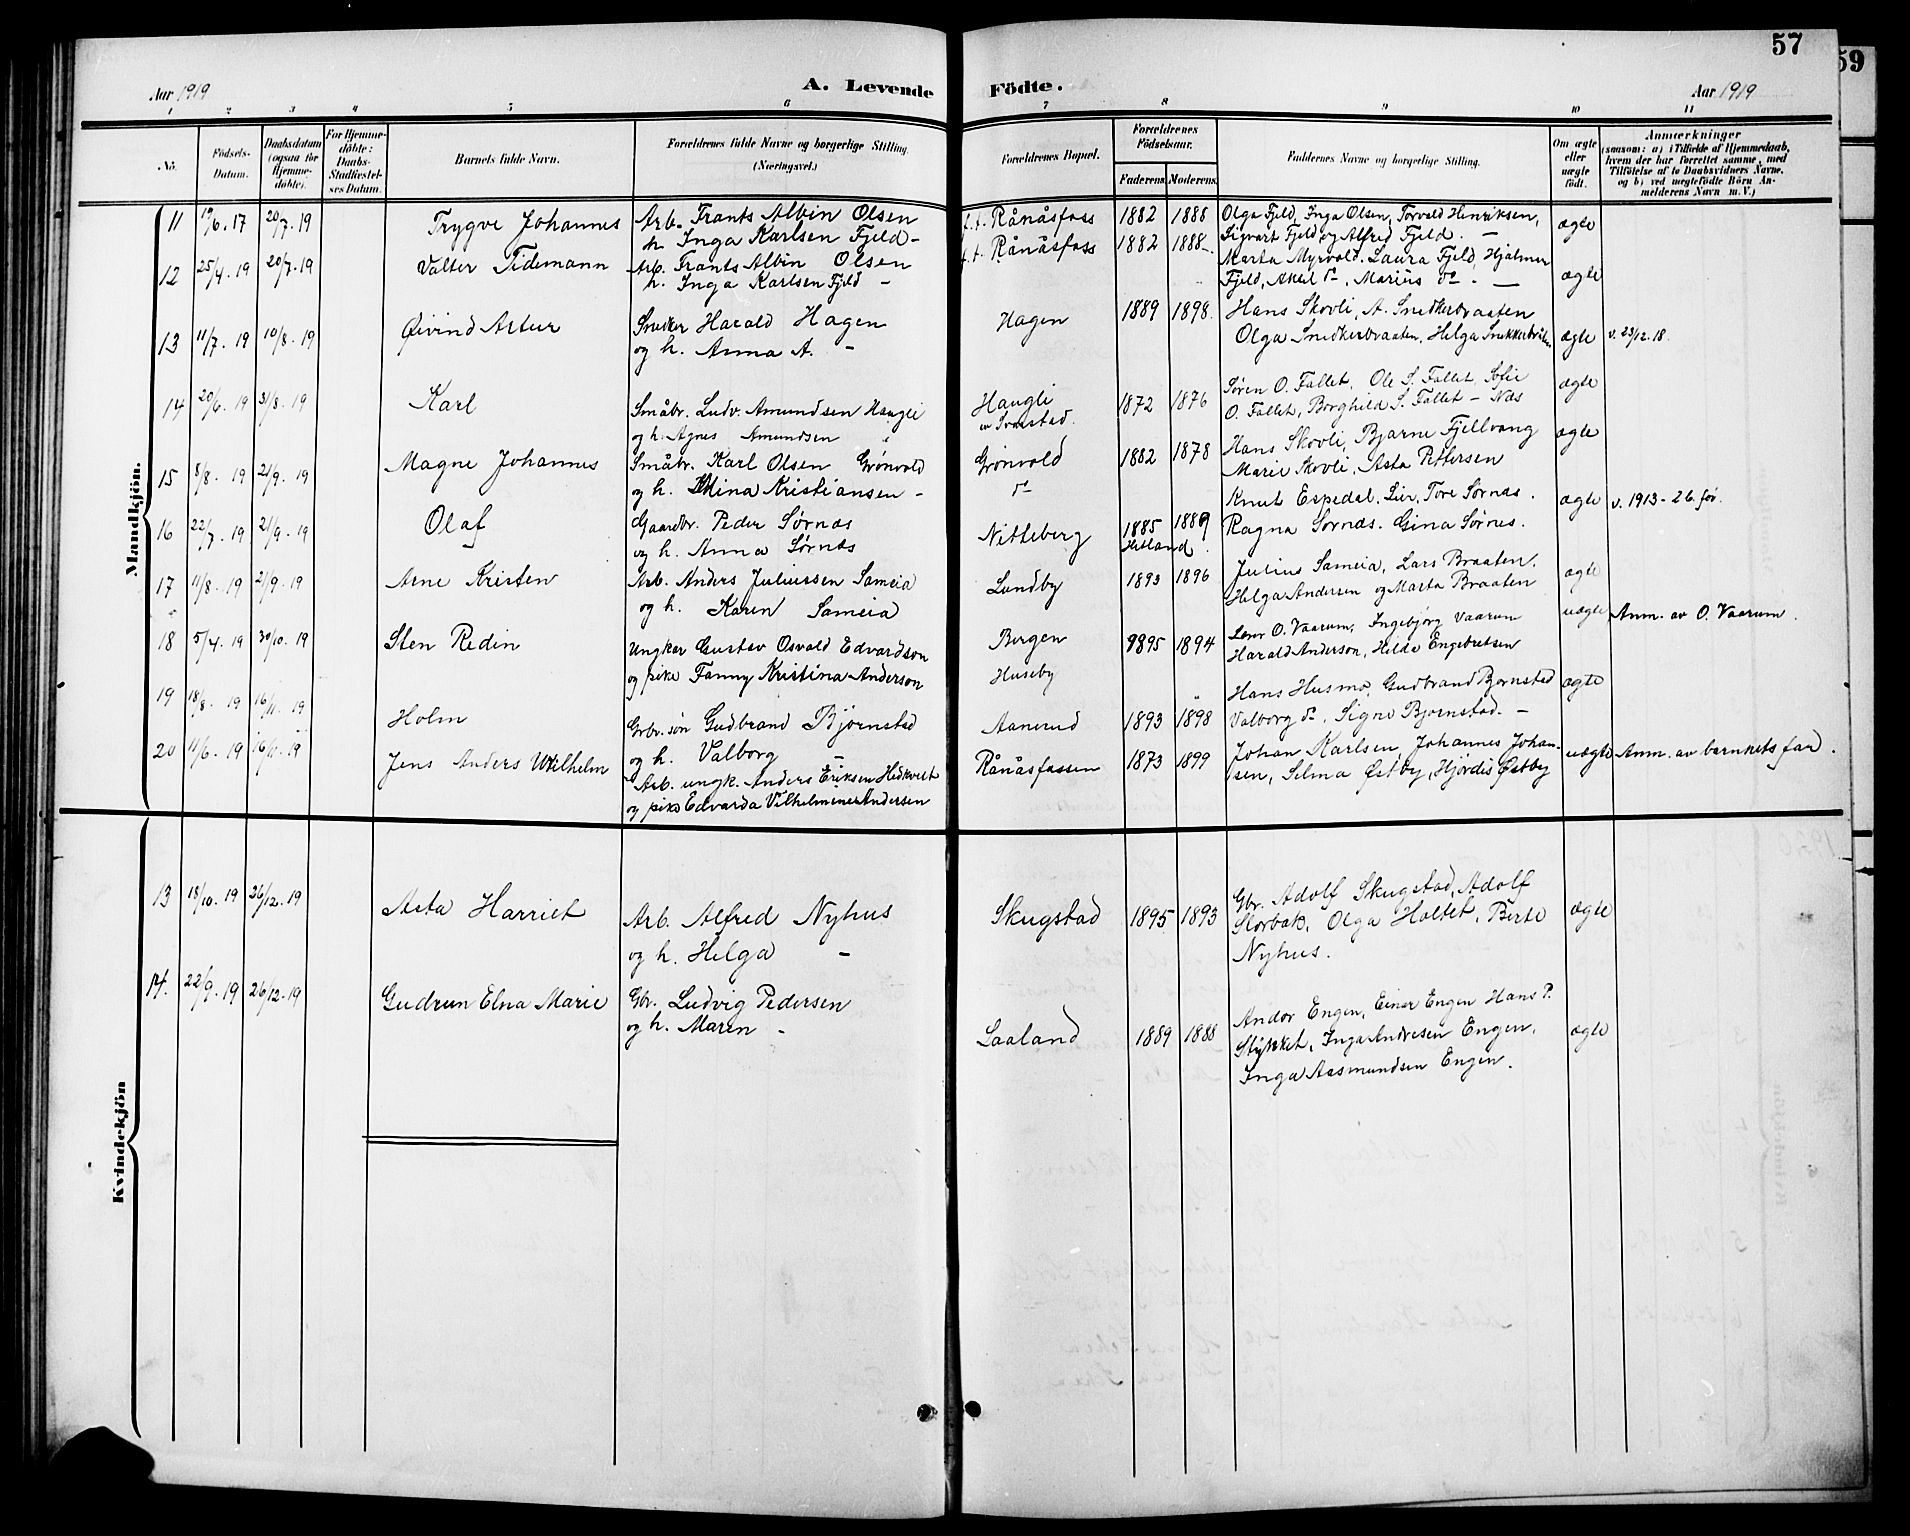 57
59
Aar 1919
A. Levende
Födte.
Aar 1919
1 2 3 4 5 6 7 8 9 10 11
No.
Födsels-
Datum.
Daabsdatum
(ogsaa for
Hjemme-
döbte).
For Hjemme-
döbte:
Daabs-
Stadfæstel-
ses Datum.
Barnets fulde Navn.
Forældrenes fulde Navne og borgerlige Stilling.
(Næringsvei.)
Forældrenes Bopæl.
Forældrenes
Födselsaar.
Faderens. Moderens.
Faddernes Navne og borgerlige Stilling.
Om ægte
eller
uægte
födt.
Anmærkninger
(saasom: a) i Tilfælde af Hjemmedaab,
hvem der har forrettet samme, med
Tilföielse af to Daabsvidners Navne,
og b) ved uægtefödte Börn An-
melderens Navn m. V.)
Mandkjön.
11 19/6.17 20/7.19 Trygve Johannes Arb. Frants Albin Olsen f.t. Rånåsfoss 1882 1888 Olga Fjeld, Inga Olsen, Torvald Henriksen, ægte
h. Inga Karlsen Fjeld - Sigvart Fjeld og Alfred Fjeld. -
12 25/4.19 20/7.19 Valter Tidemann Arb. Frants Albin Olsen f.t. Rånåsfoss 1882 1888 Marta Myrvold, Laura Fjeld, Hjalmer ægte
h. Inga Karlsen Fjeld - Fjeld, Aksel do, Marius do. -
13 11/7.19 10/8.19 Øivind Artur Sneker Harald Hagen Hagen 1889 1898. Hans Skovli, A. Snedkerbraaten
og h. Anna A. - Olga Snedkerbraaten, Helga ægte v. 23/12.18.
14 20/6.19 31/8.19 Karl Småbr. Ludv. Amundsen Haugli Haugli 1872 1876 Søren O. Fallet, Ole S. Fallet, Sofie ægte
og h. Agnes Amundsen " Svarstad. O. Fallet, Borghild S. Fallet - Næs
15 5/8.19 21/9.19 Magne Johannes Småbr. Karl Olsen Grønvold Grønvold 1882 1878 Hans Skovli, Bjarne Fjellvang ægte
og h. Mina Kristiansen - do Marie Skovli, Asta Pettersen
16 22/7.19 21/9.19 Olaf Gaardbr. Peder Sørnæs Nitteberg 1885 1889 Knut Espedal, Lier, Tore Sørnæs. ægte v. 1913 - 26 før.
og h. Anna Sørnæs Hetland. Ragna Sørnæs. Gina Sørnes.
17 11/8.19 21/9.19 Arne Kristen Arb. Anders Juliussen Sameia Lundby 1893 1896 Julius Sameia, Lars Braaten, ægte
og h. Karen Sameia Helga Andersen og Marta Braaten
18 5/4.19 30/10.19 Sten Redin Ungkar Gustav Osvald Edvardson Bergen 1895 1894 O. Vaarum, Ingebjørg Vaarum uægte Anm. av O. Vaarum.
og pike Fanny Kristina Anderson Huseby Harald Anderson, Hilda Engebretsen
19 18/8.19 16/11.19 Holm Grbr. søn Gudbrand Bjørnstad Aanerud 1893 1898 Hans Husmo, Gudbrand Bjørnstad ægte
og h. Valborg - Valborg do, Signe Bjørnstad. -
20 11/6.19 16/11.19 Jens Anders Wilhelm Arb. ungk. Anders Eriksen Hedkvist Rånåsfossen 1873 1899 Johan Karlsen, Johannes Johan- uægte Anm. av barnets far.
og pike Edvarda Vilhelmine Andersen sen, Selma Østby, Hjørdis Østby
Kvindekjön
13 18/10.19 26/12.19 Asta Harriet Arb. Alfred Nyhus Skugstad 1895 1893 Gbr. Adolf Skugstad, Adolf ægte
og h. Helga - Storbak, Olga Holtet, Berte
Nyhus.
14. 22/9.19 26/12.19 Gudrun Elna Marie Gbr. Ludvig Pedersen Laaland 1889 1888 Andor Engen, Einar Engen Hans P. ægte
og h. Maren - Stykket, Inga Andresen Engen,
Inga Aasmundsen Engen.